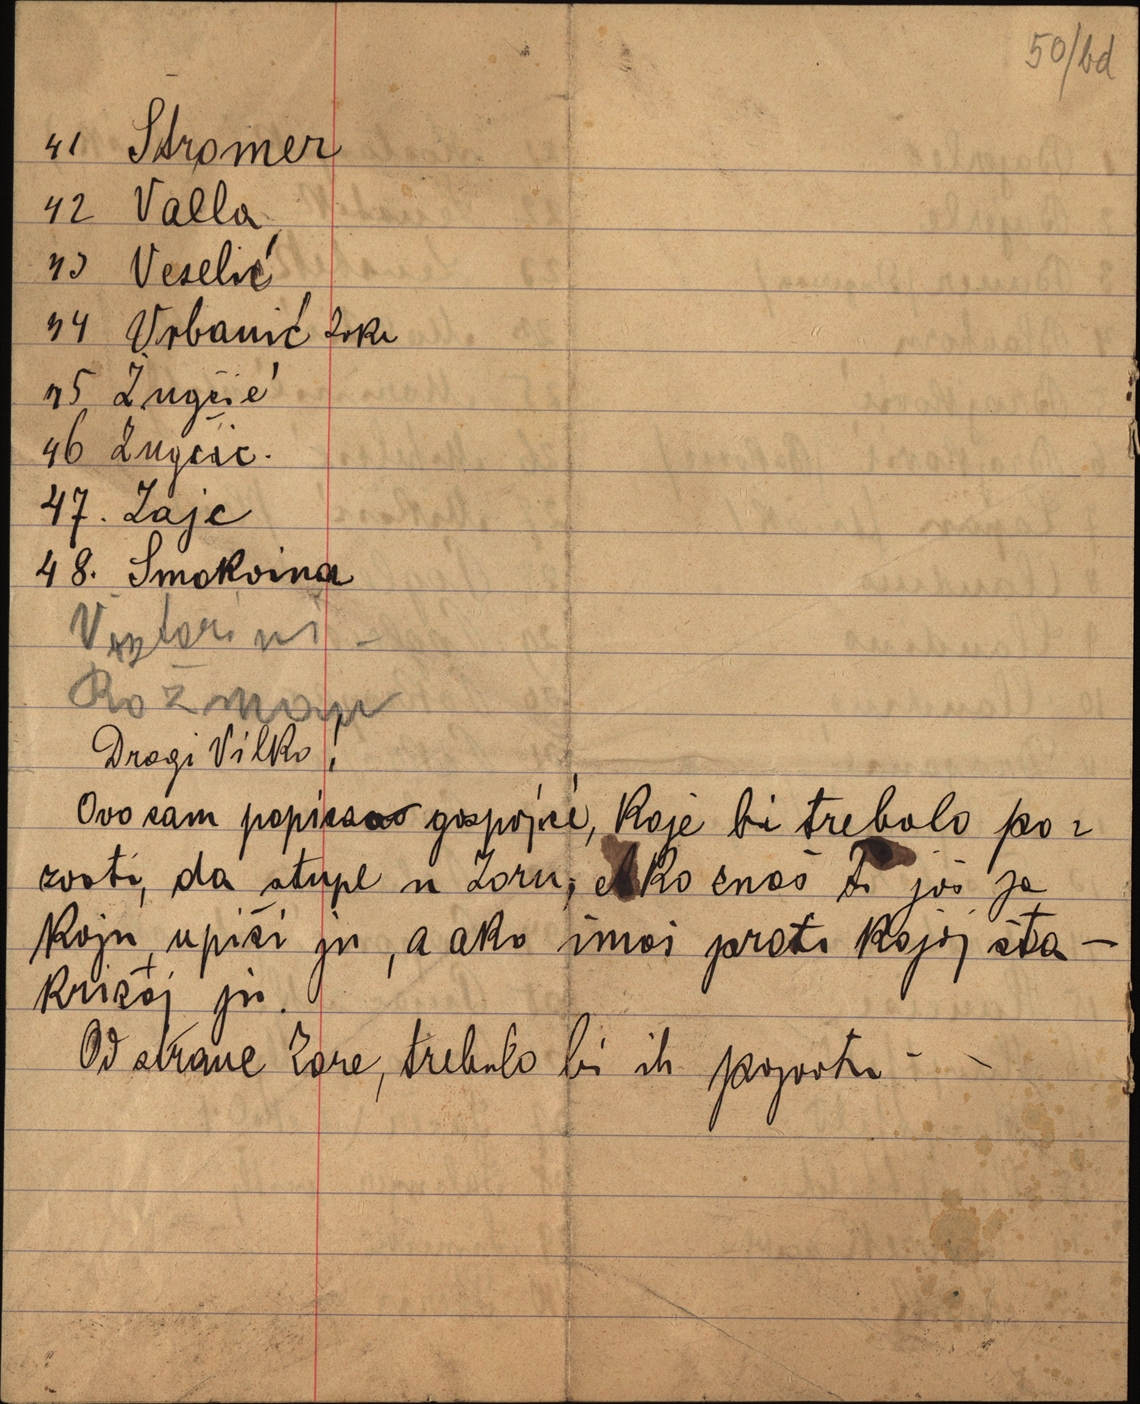 50/bd
41 Stromer
42 Valla
43 Veselić
44 Vrbanić Zoka
45 Žugčić
46 Žugčić.
47. Zajc
48. Smokvina
Rožman
Dragi Vilko!
Ovo sam popisao gospojice, koje bi trebalo po=
zvati, da stupe u Zoru, Ako znaš Ti još za
koju, upiši ju, a ako imaš proti kojoj šta –
križaj ju.
Od strane Zore, trebalo bi ih pozvati –